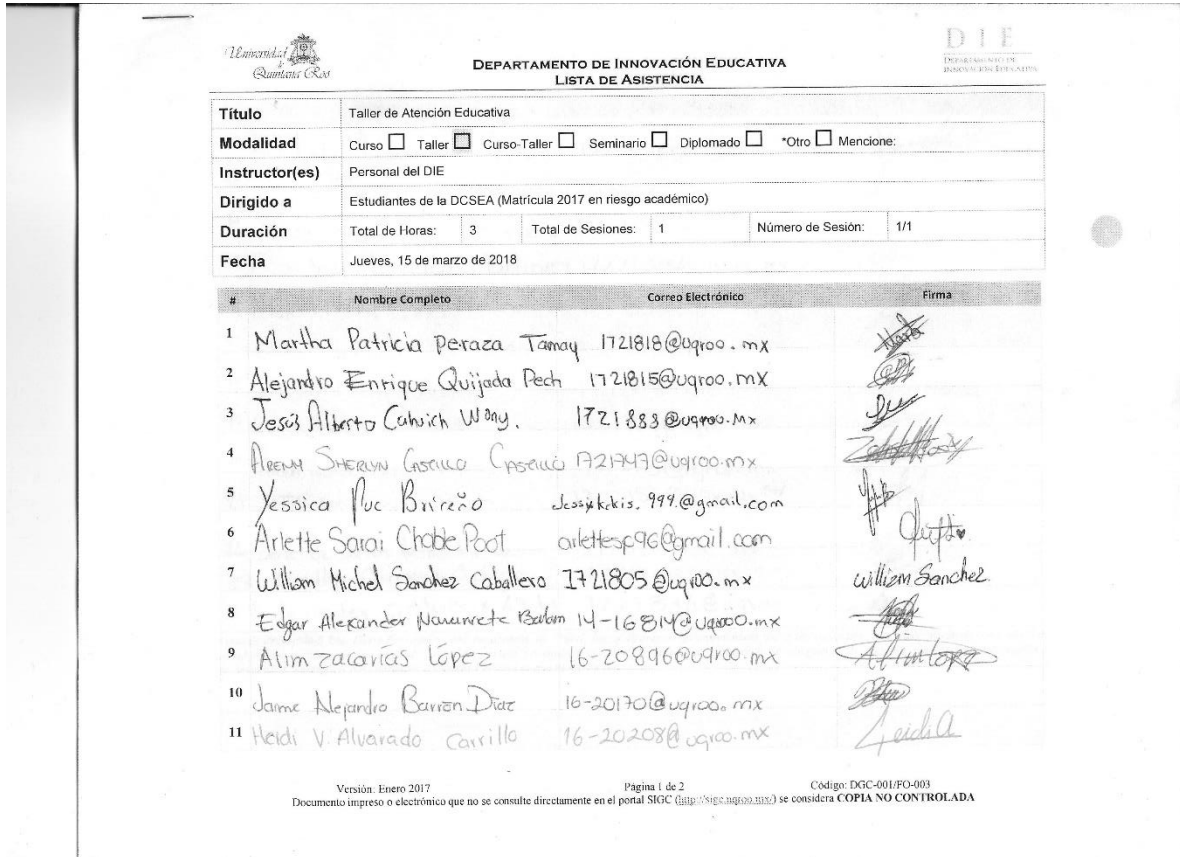 Universidad
de
Quintana Roo
DIE
DEPARTAMENTO DE
INNOVACIÓN EDUCATIVA
DEPARTAMENTO DE INNOVACIÓN EDUCATIVA
LISTA DE ASISTENCIA
Título Taller de Atención Educativa
Modalidad Curso Taller Curso-Taller Seminario Diplomado *Otro Mencione:
Instructor(es) Personal del DIE
Dirigido a Estudiantes de la DCSEA (Matrícula 2017 en riesgo académico)
Duración Total de Horas: 3 Total de Sesiones: 1 Número de Sesión: 1/1
Fecha Jueves, 15 de marzo de 2018
# Nombre Completo Correo Electrónico Firma
1 Martha Patricia Peraza Tamay 1721818@uqroo.mx
2 Alejandro Enrique Quijada Pech 1721815@uqroo.mx
3 Jesús Alberto Cahuich Wong. 1721883@uqroo.mx
4 SHERLYN CASTILLO CASTILLO 1721747@uqroo.mx
5 Yessica Puc Briceño
6 Arlette Sarai Chable Poot arlettesp96@gmail.com
7 William Michel Sanchez Caballero 1721805@uqroo.mx William Sanchez
8 Edgar Alexander Navarrete 14-16814@uqroo.mx
9 Alim Zacarías López 16-20896@uqroo.mx
10 Jaime Alejandro Barron Díaz 16-20170@uqroo.mx
11 Heidi V. Alvarado Carrillo 16-20208@uqroo.mx
Versión: Enero 2017 Página 1 de 2 Código: DGC-001/FO-003
Documento impreso o electrónico que no se consulte directamente en el portal SIGC (http://sigc.uqroo.mx/) se considera COPIA NO CONTROLADA